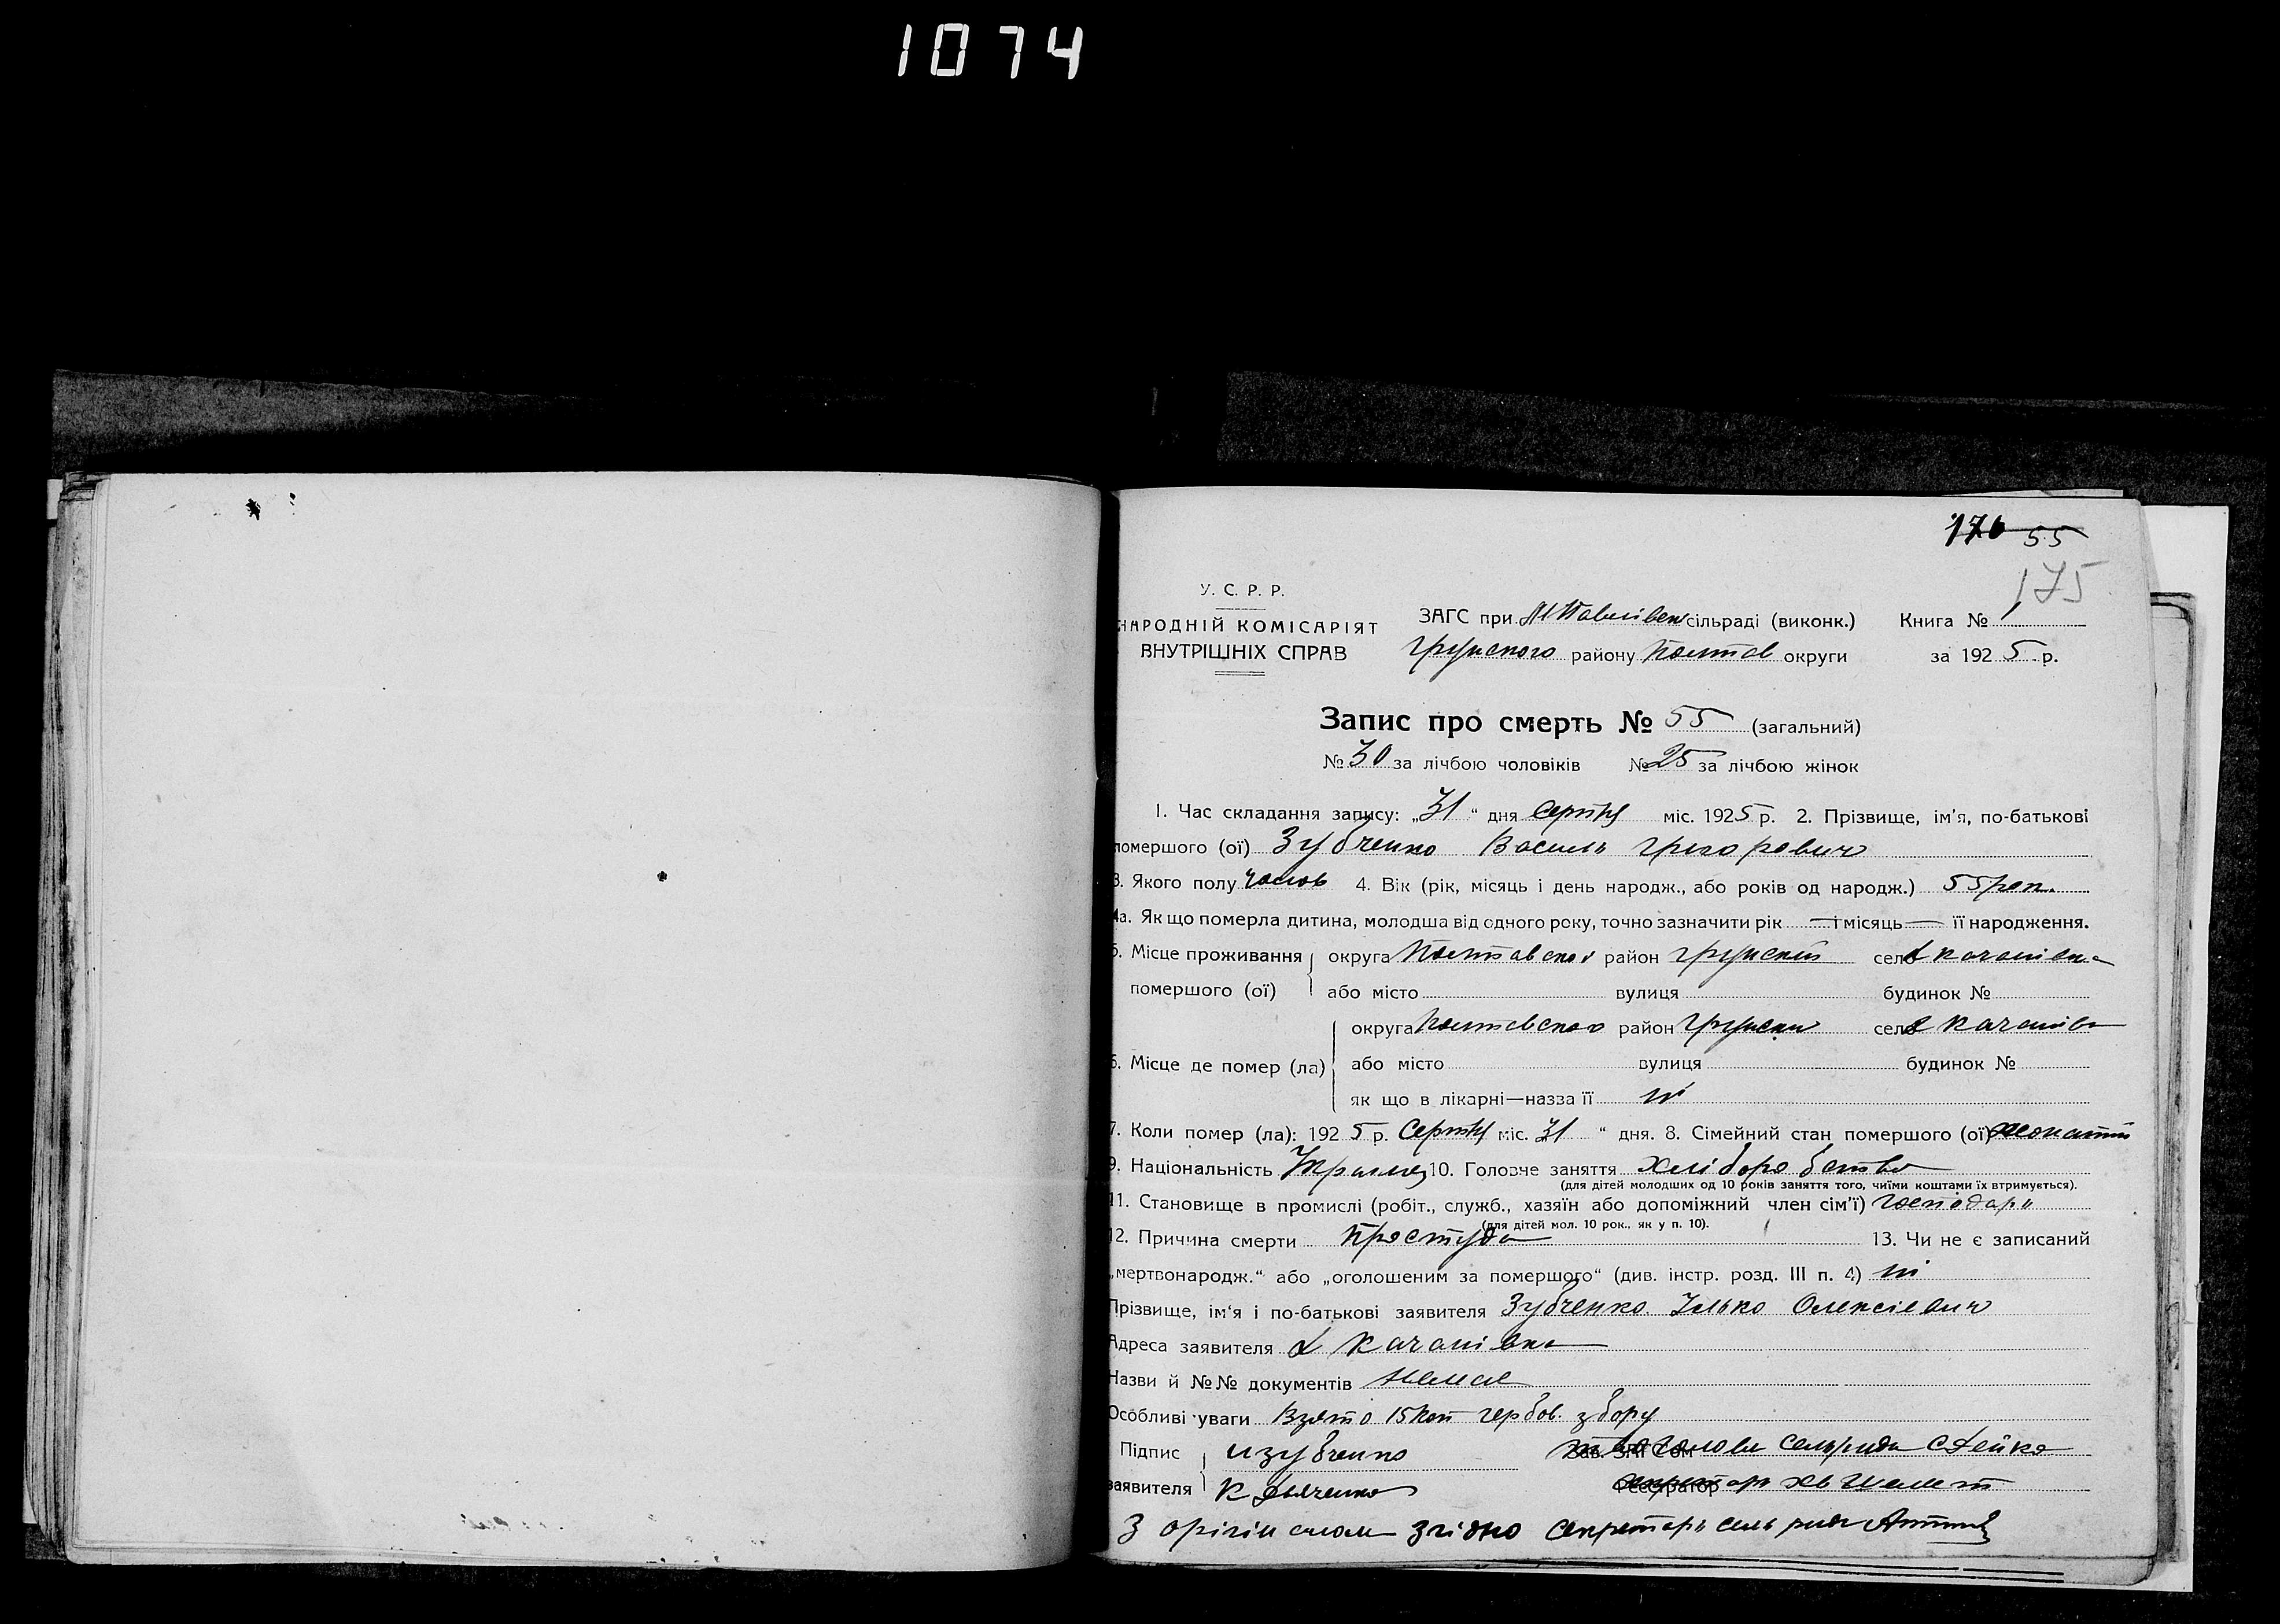 1074
176 55
175
У. С. Р. Р.
НАРОДНІЙ КОМІСАРІЯТ
ВНУТРІШНІХ СПРАВ
ЗАГС при сільраді (виконк.) Книга № 1
Грунского району Полтав округи за 1925 р.
Запис про смерть № 55 (загальний)
№ 30 за лічбою чоловіків № 25 за лічбою жінок
1. Час складання запису: „31“ дня Серпня міс. 1925 р. 2. Прізвище, ім'я, по-батькові
помершого (ої) Зубченко Василь Григорович
3. Якого полу чолов 4. Вік (рік, місяць і день народж., або років од народж.) 55 рок.
4а. Як що померла дитина, молодша від одного року, точно зазначити рік — і місяць — її народження.
5. Місце проживання округа Полтавська район Грунский село Х Качанівка
помершого (ої) або місто вулиця будинок №
округа Полтавська район Грунски село Х Качанівка
6. Місце де помер (ла) або місто вулиця будинок №
як що в лікарні—назва її ні
7. Коли помер (ла): 1925 р. Серпня міс. 31 “ дня. 8. Сімейний стан помершого (ої) жонатий
9. Національність 10. Головне заняття хліборобство
(для дітей молодших од 10 років заняття того, чиїми коштами їх втримується).
11. Становище в промислі (робіт., служб., хазяїн або допоміжний член сім'ї) господарь
(для дітей мол. 10 рок., як у п. 10).
12. Причина смерти простуда 13. Чи не є записаний
„мертвонародж.“ або „оголошеним за помершого“ (див. інстр. розд. III п. 4) ні
Прізвище, ім'я і по-батькові заявителя Зубченко Ілько Олексієвич
Адреса заявителя Х Качанівка
Назви й №№ документів немає
Особливі уваги Взято 15 коп гербов. збору
Підпис ИЗубченко Зав. ЗАГСом голови сельради
заявителя К Дьяченко Реєстратор
З орігіналом згідно секретарь сельради